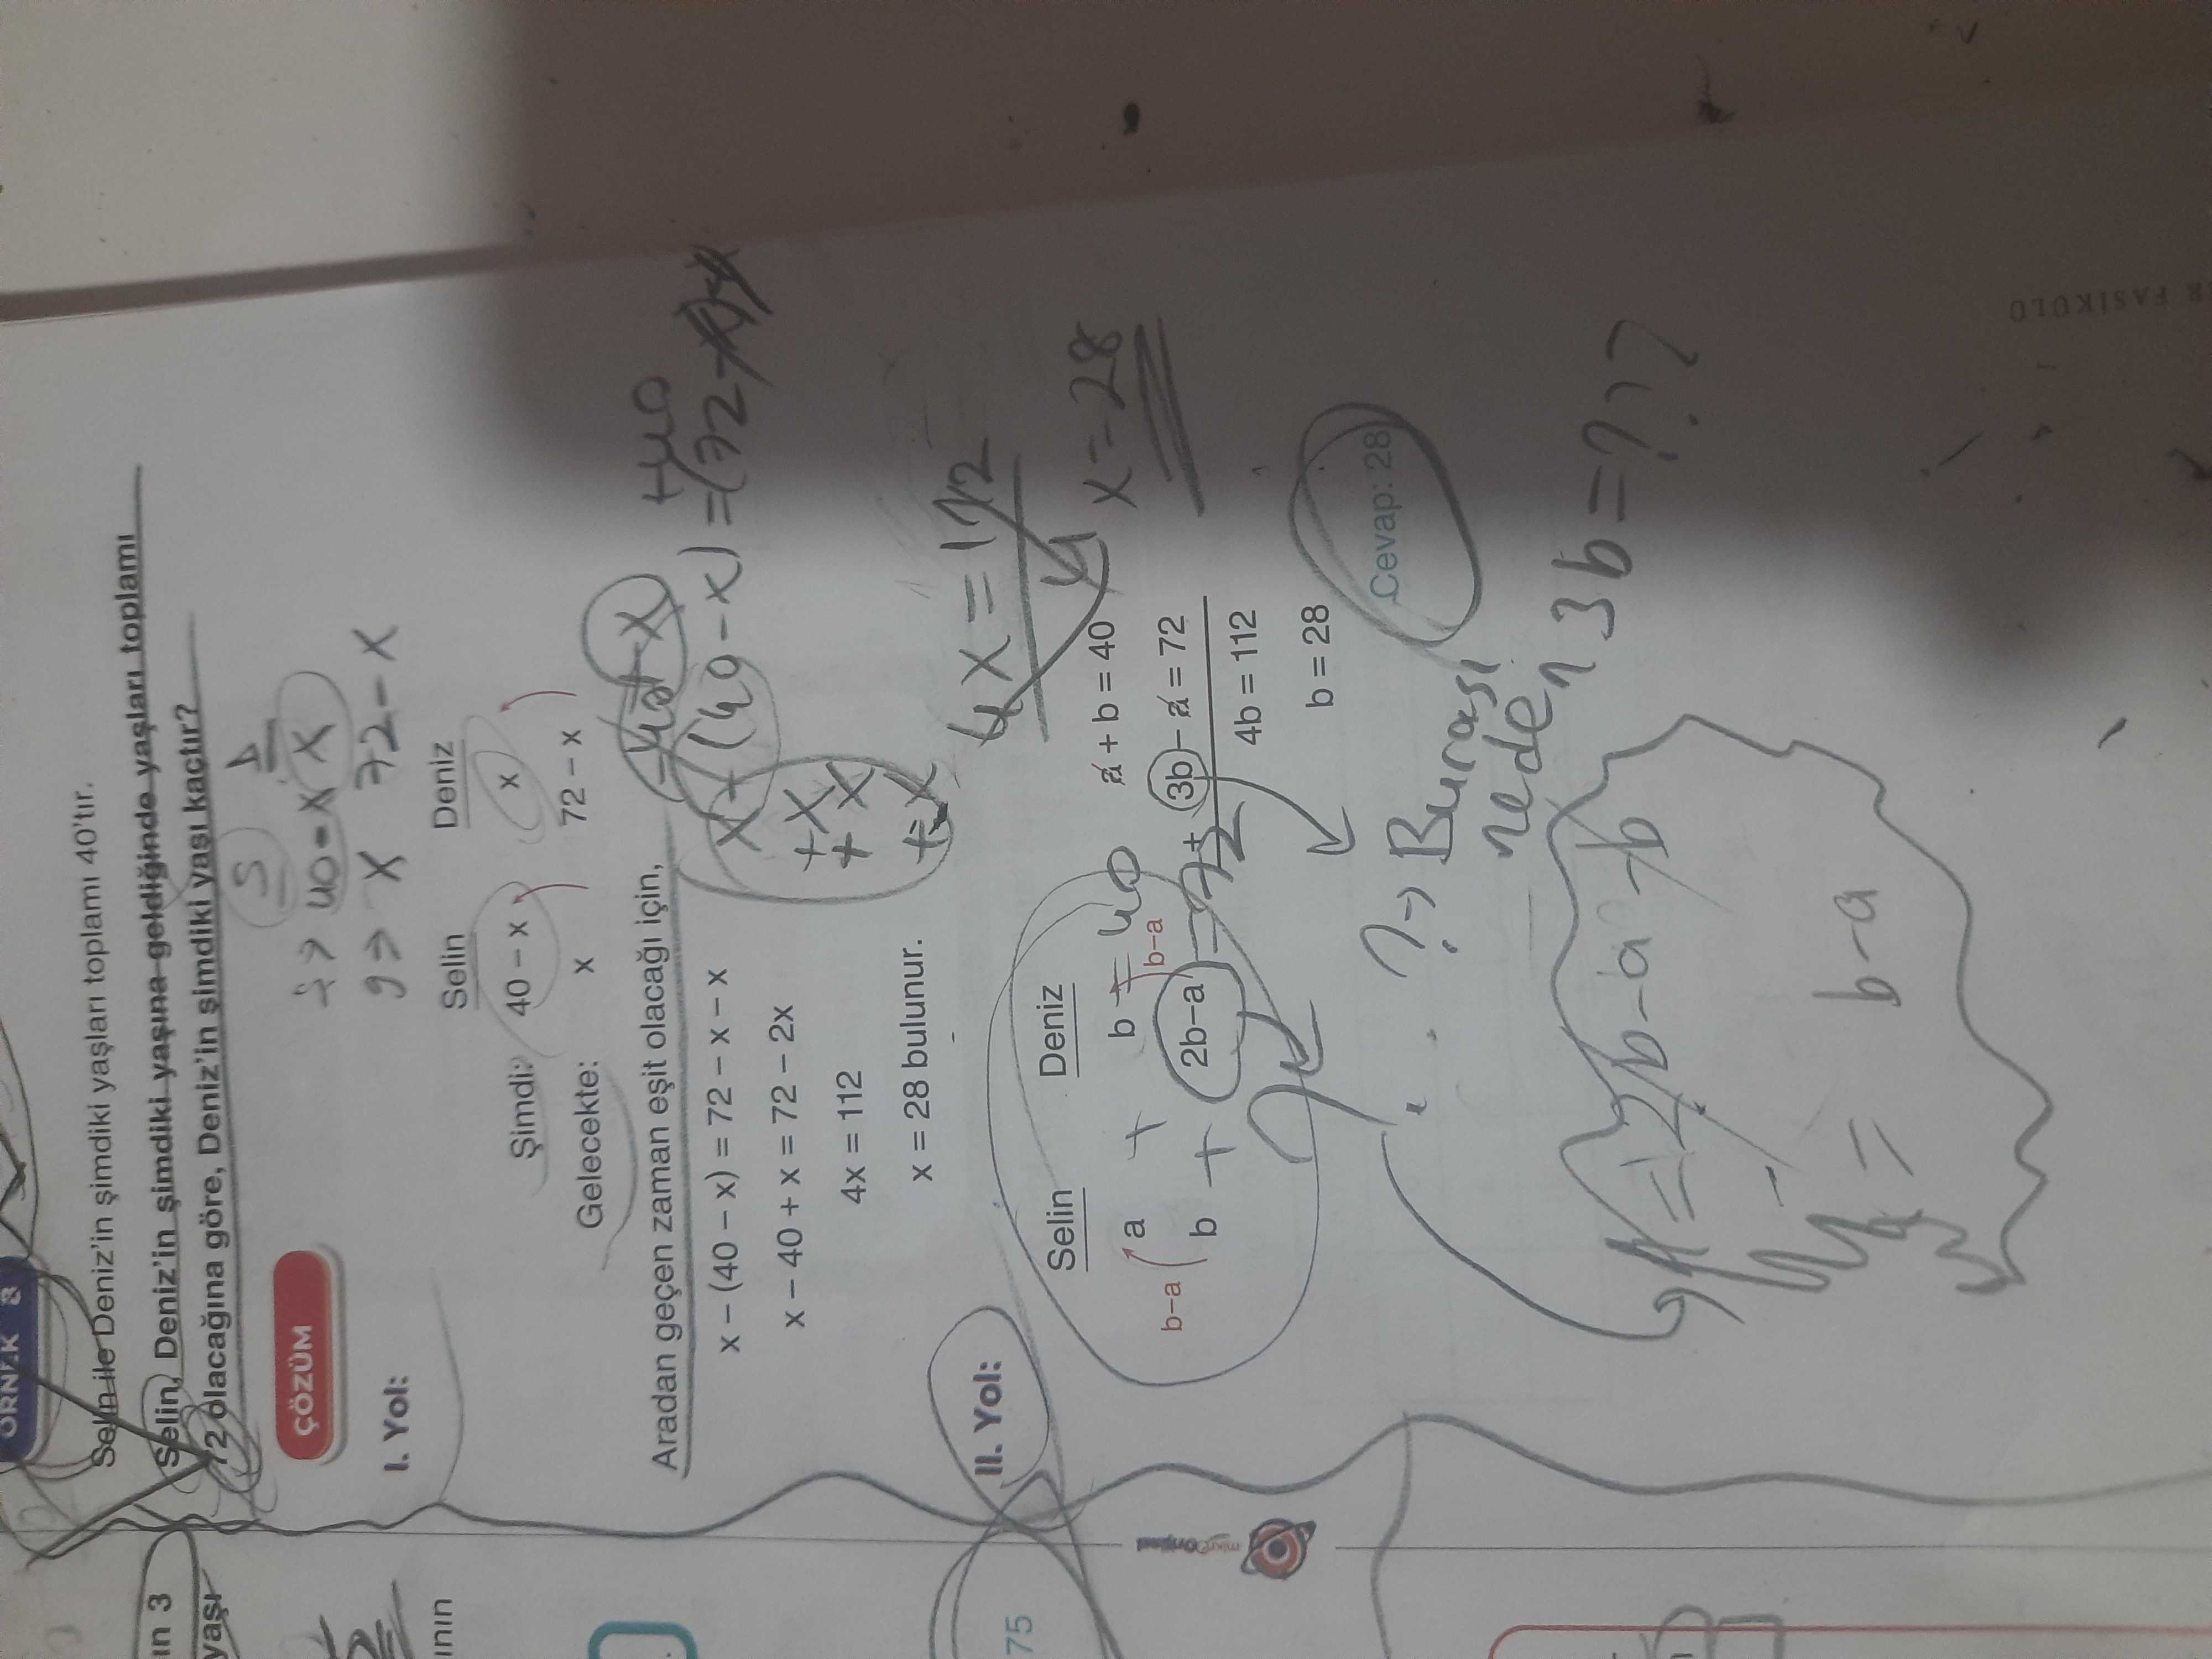 ÖRNEK 8
Selin ile Deniz'in şimdiki yaşları toplamı 40'tır.
Selin, Deniz'in şimdiki yaşına geldiğinde yaşları toplamı
72 olacağına göre, Deniz'in şimdiki yaşı kaçtır?
S D
ş> 40-x x
g> x 72-x
ÇÖZÜM
I. Yol:
Selin Deniz
Şimdi: 40 – x x
Gelecekte: x 72 – x
Aradan geçen zaman eşit olacağı için,
x – (40 – x) = 72 – x – x
x – 40 + x = 72 – 2x
4x = 112
x = 28 bulunur.
+40
(40-x) = (72-
4x = 112
x = 28
II. Yol:
Selin Deniz
a + b = 40
b–a b–a
b + 2b–a = 72
a + b = 40
3b – a = 72
+
4b = 112
b = 28
Cevap: 28
?→ Burası
neden 3b=???
= 2b-a-b
= b-a
ın 3
yaşı
ının
75
mikroOrijinal
R FASİKÜLÜ